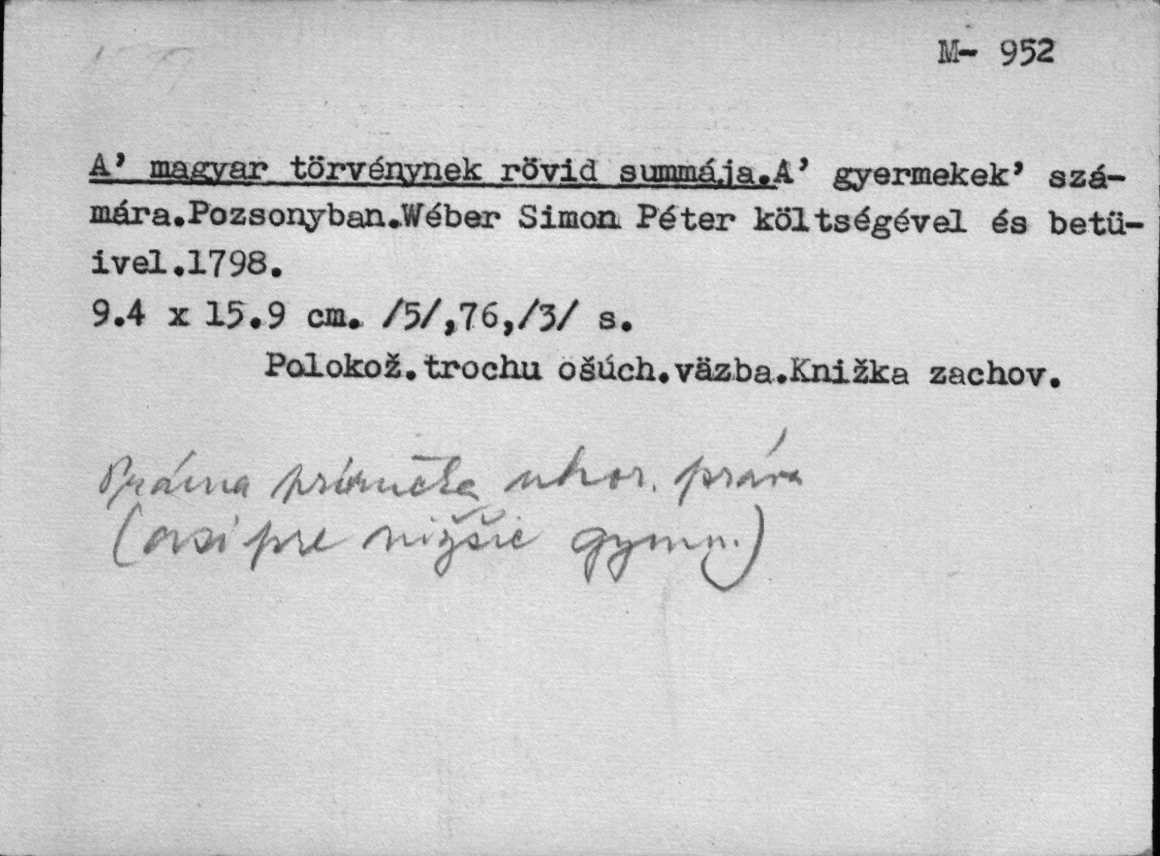 M- 952
A’ magyar törvénynek rövid summája.A’ gyermekek’ szá-
mára.Pozsonyban.Wéber Simon Péter költségével és betü-
ivel.1798.
9.4 x 15.9 cm. /5/,76,/3/ s.
Polokož.trochu ošúch.väzba.Knižka zachov.
príručka uhor. práva
(asi pre nižšie gymn.)